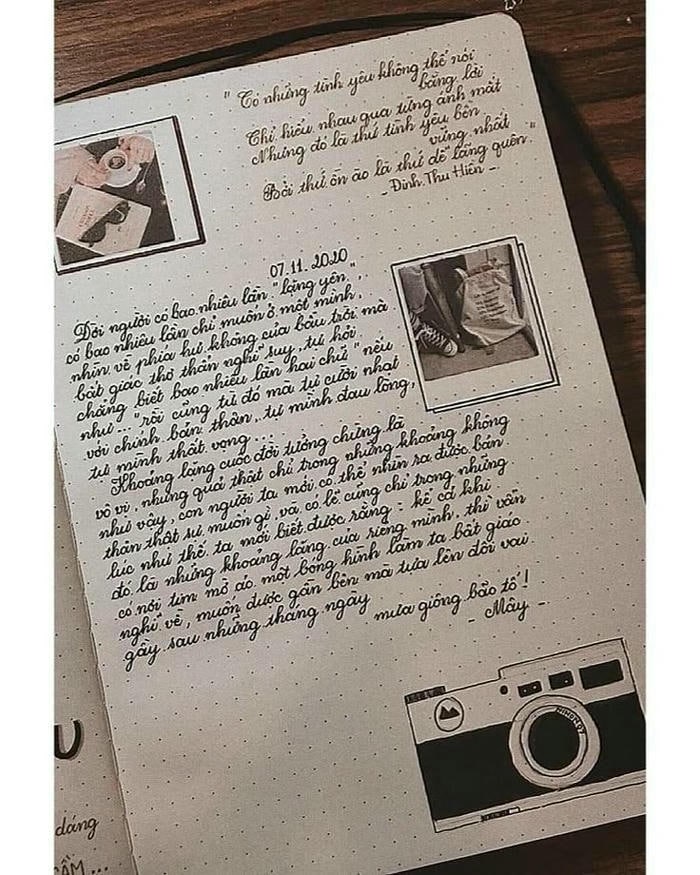 "Có những tình yêu không thể nói
bằng lời
Chỉ hiểu nhau qua từng ánh mắt
Nhưng đó là thứ tình yêu bền
vững nhất
Bởi thứ ồn ào là thứ dễ lãng quên."
- Đinh Thu Hiền -
07.11.2020
Đời người có bao nhiêu lần "lặng yên",
có bao nhiêu lần chỉ muốn ở một mình,
nhìn về phía hư không của bầu trời mà
bất giác thơ thẩn nghĩ suy, tự hỏi
chẳng biết bao nhiêu lần hai chữ "nếu
như..." rồi cũng từ đó mà tự cười nhạt
với chính bản thân, tự mình đau lòng,
tự mình thất vọng...
Khoảng lặng cuộc đời tưởng chừng là
vô vị, nhưng quả thật chỉ trong những khoảng không
như vậy, con người ta mới có thể nhìn ra được bản
thân thật sự muốn gì, và có lẽ cũng chỉ trong những
lúc như thế, ta mới biết được rằng - kể cả khi
đó là những khoảng lặng của riêng mình, thì vẫn
có nơi tim mờ ảo một bóng hình làm ta bất giác
nghĩ về, muốn được gần bên mà tựa lên đôi vai
gầy sau những tháng ngày
mưa giông bão tố!
- Mây -
U
dáng
CẦM...